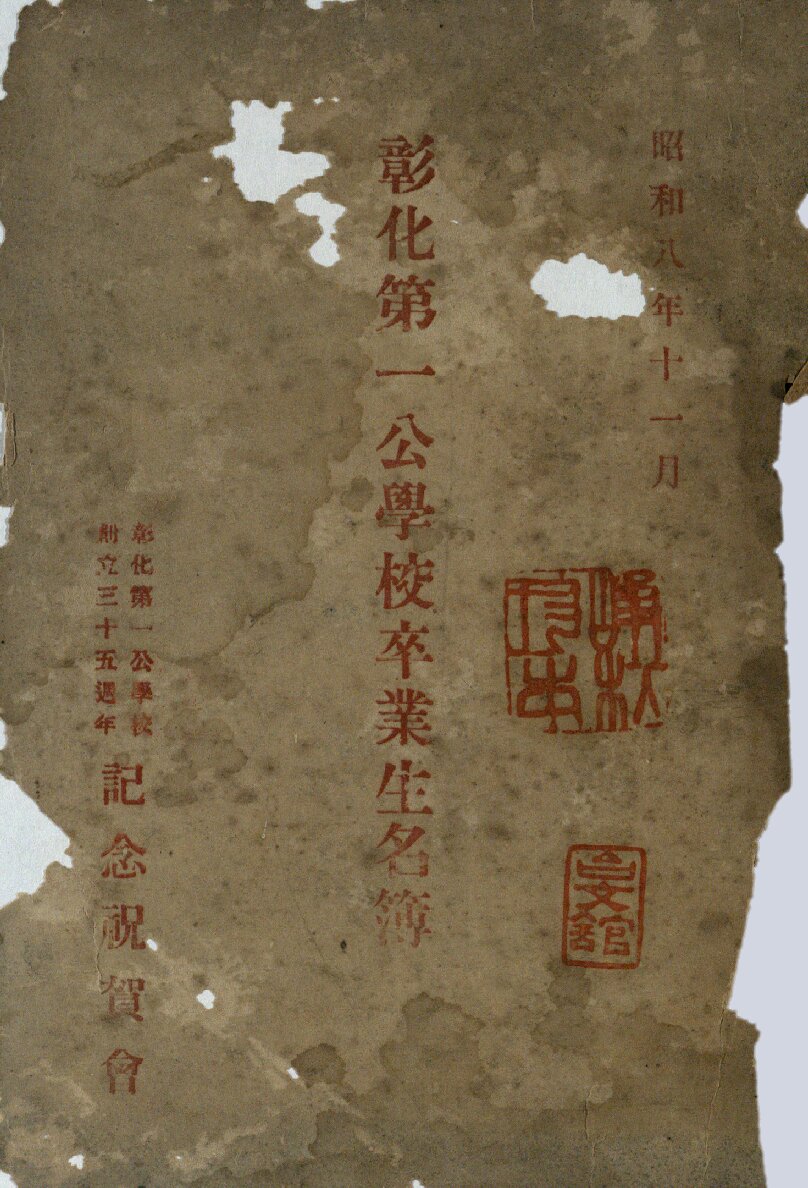 昭和八年十一月
彰化第一公學校卒業生名簿
彰化第一公學校
創立三十五週年
記念祝賀會